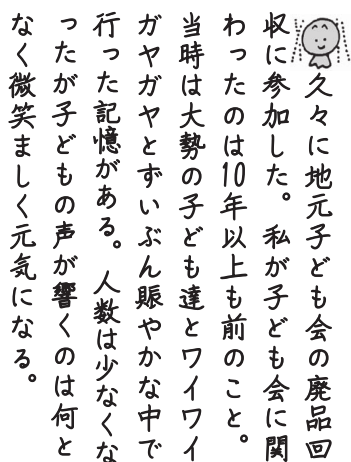 久々に地元子ども会の廃品回
収に参加した。私が子ども会に関
わったのは10年以上も前のこと。
当時は大勢の子ども達とワイワイ
ガヤガヤとずいぶん賑やかな中で
行った記憶がある。人数は少なくな
ったが子どもの声が響くのは何と
なく微笑ましく元気になる。